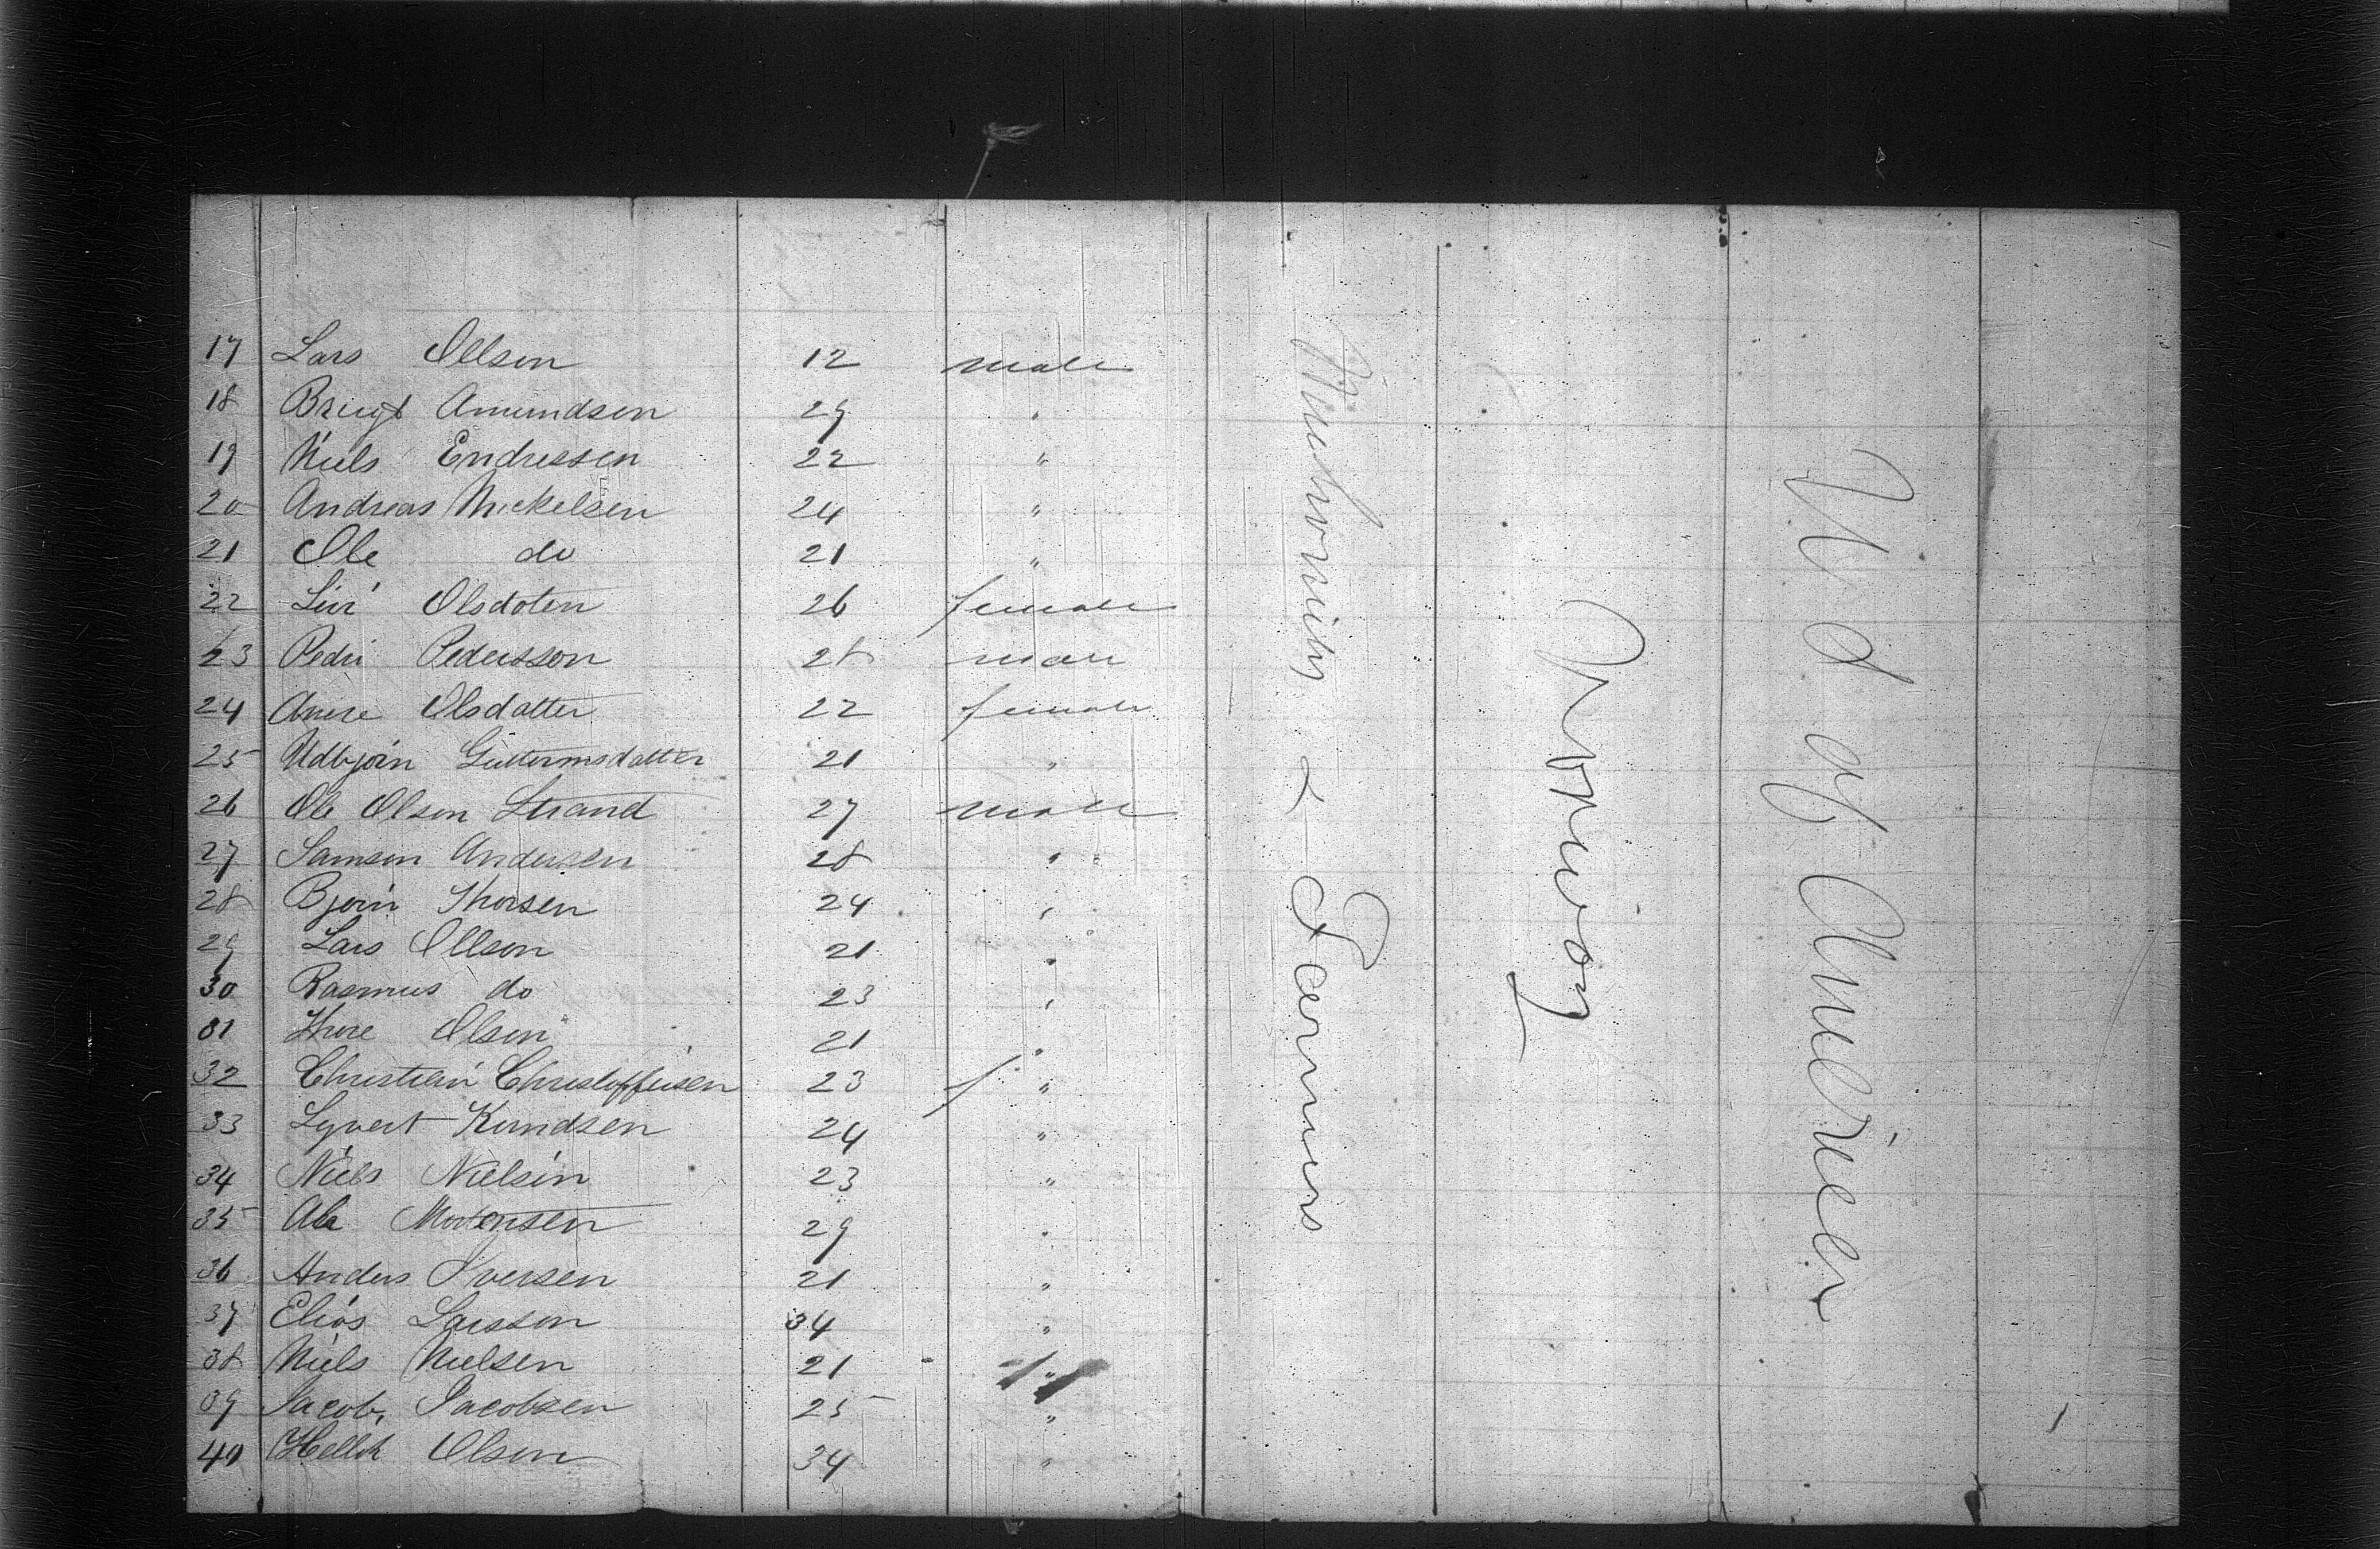 17 Lars Ollson 12 male
18 Amundsen 29 "
19 Niels Endressen 22 "
20 Andreas Mickelsen 24 "
21 Ole do 21 "
22 Livi Olsdoten 26 female
23 Pedri Pedersson 28 male
24 Anne Olsdatter 22 female
25 Udbjoin Guttormsdatter 21 "
26 Ole Olson Strand 27 male
27 Samson Andersen 28 "
28 Bjorn Thorsen 24 "
29 Lars Ollson 21 "
30 Rasmus do 23 "
31 Thore Olson 21 "
32 Christian Christoffersen 23 f "
33 Syvert Knudsen 24 "
34 Niels Nielsen 23 "
35 Mortensen 29 "
36 Anders Iversen 21 "
37 Elias Larsson 34 "
38 Niels Nielsen 21 "
39 Jacob, Jacobsen 25 "
40 Hellik Olson 34 "
& Farmers
Norway
U S of America